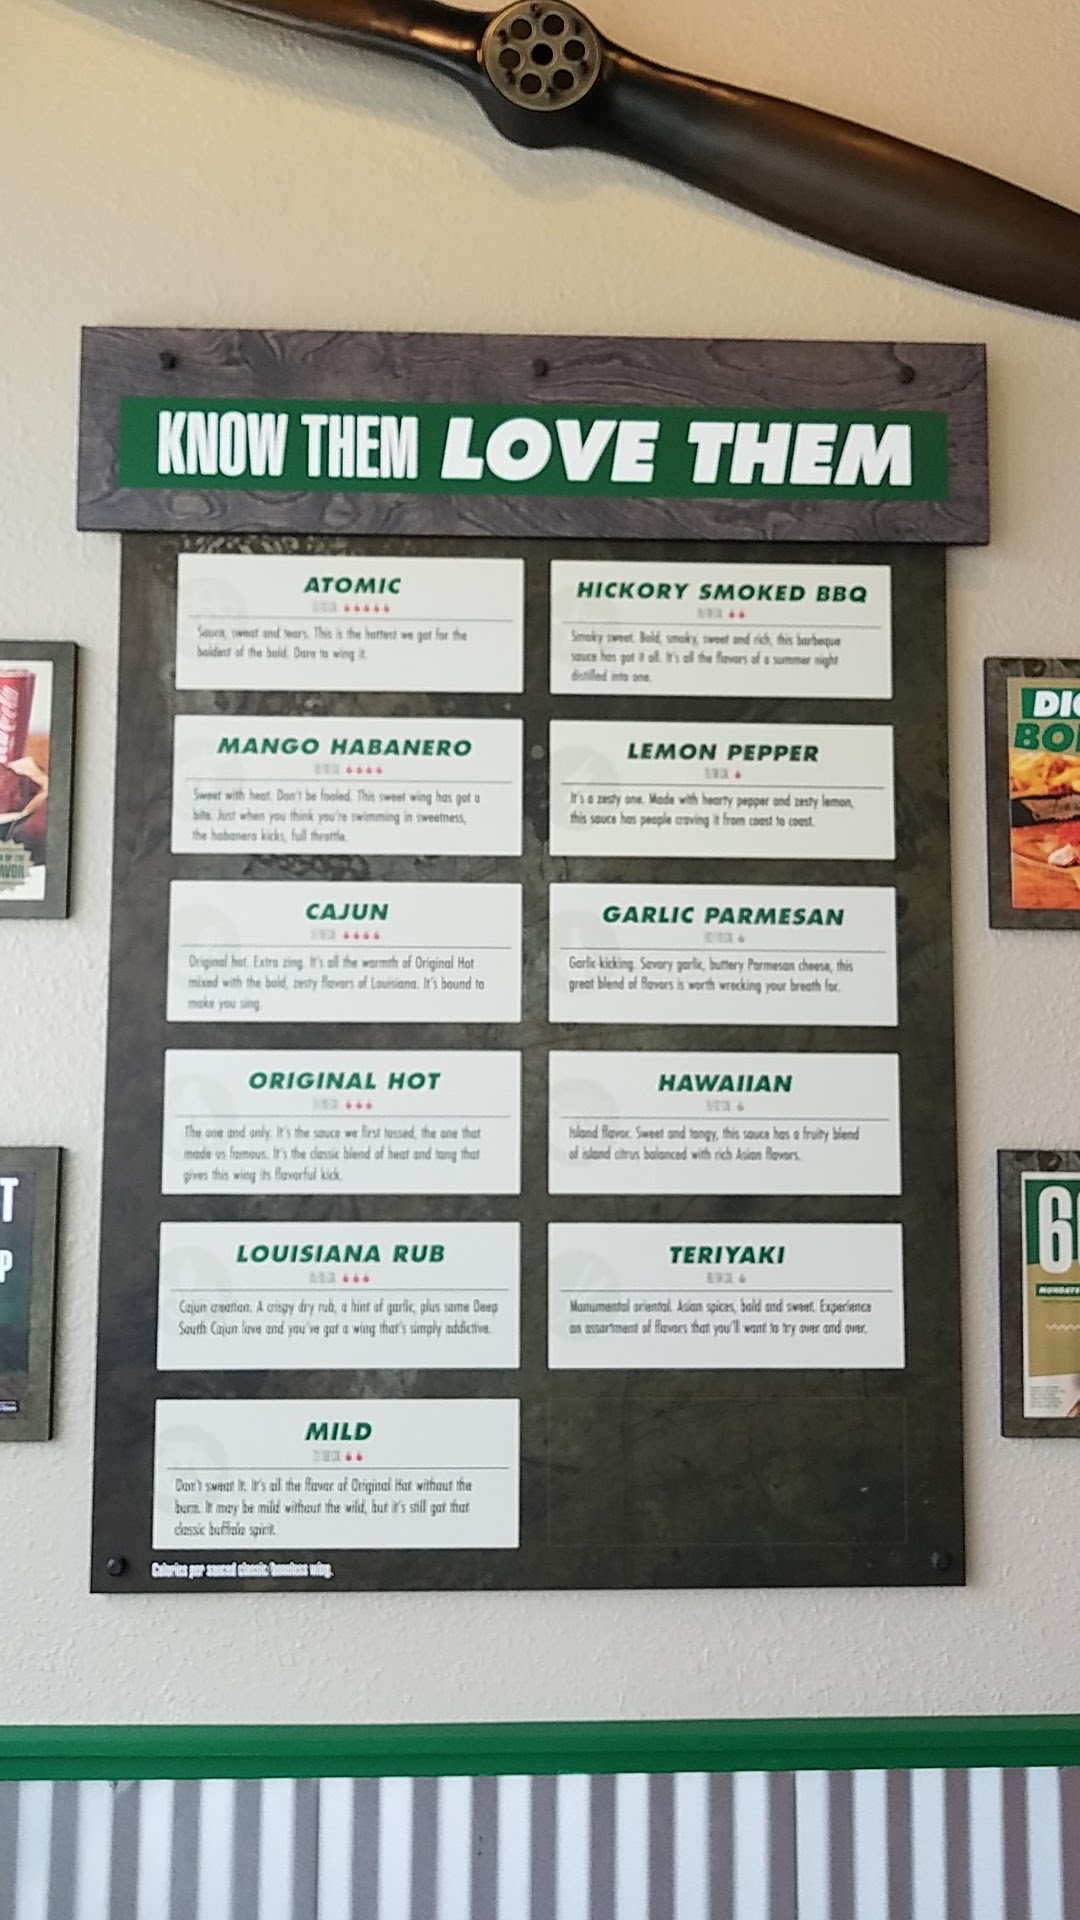 KNOW THEM LOVE THEM
ATOMIC
Sauce, sweat and tears. This is the hottest we got for the
boldest of the bold. Dare to wing it.
HICKORY SMOKED BBQ
Smoky sweet. Bold, smoky, sweet and rich, this barbeque
sauce has got it all. It's all the flavors of a summer night
distilled into one.
MANGO HABANERO
Sweet with heat. Don't be fooled. This sweet wing has got a
bite. Just when you think you're swimming in sweetness,
the habanero kicks, full throttle.
LEMON PEPPER
It's a zesty one. Made with hearty pepper and zesty lemon,
this sauce has people craving it from coast to coast.
CAJUN
Original hot. Extra zing. It's all the warmth of Original Hot
mixed with the bold, zesty flavors of Louisiana. It's bound to
make you sing.
GARLIC PARMESAN
Garlic-kicking. Savory garlic, buttery Parmesan cheese, this
great blend of flavors is worth wrecking your breath for.
ORIGINAL HOT
The one and only. It's the sauce we first tossed, the one that
made us famous. It's the classic blend of heat and tang that
gives this wing its flavorful kick.
HAWAIIAN
Island flavor. Sweet and tangy, this sauce has a fruity blend
of island citrus balanced with rich Asian flavors.
LOUISIANA RUB
Cajun creation. A crispy dry rub, a hint of garlic, plus some Deep
South Cajun love and you've got a wing that's simply addictive.
TERIYAKI
Monumental oriental. Asian spices, bold and sweet. Experience
an assortment of flavors that you'll want to try over and over.
MILD
Don't sweat it. It's all the flavor of Original Hot without the
burn. It may be mild without the wild, but it's still got that
classic buffalo spirit.
Calories per sauced classic/boneless wing.
DIG
BO
6
MONDAYS
T
P